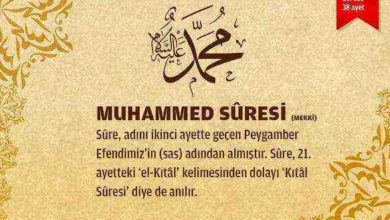 38 ayet
محمد
عليه السلام
MUHAMMED SÛRESİ (MEKKÎ)
Sûre, adını ikinci ayette geçen Peygamber
Efendimiz’in (sas) adından almıştır. Sûre, 21.
ayetteki ‘el-Kıtâl’ kelimesinden dolayı ‘Kıtâl
Sûresi’ diye de anılır.